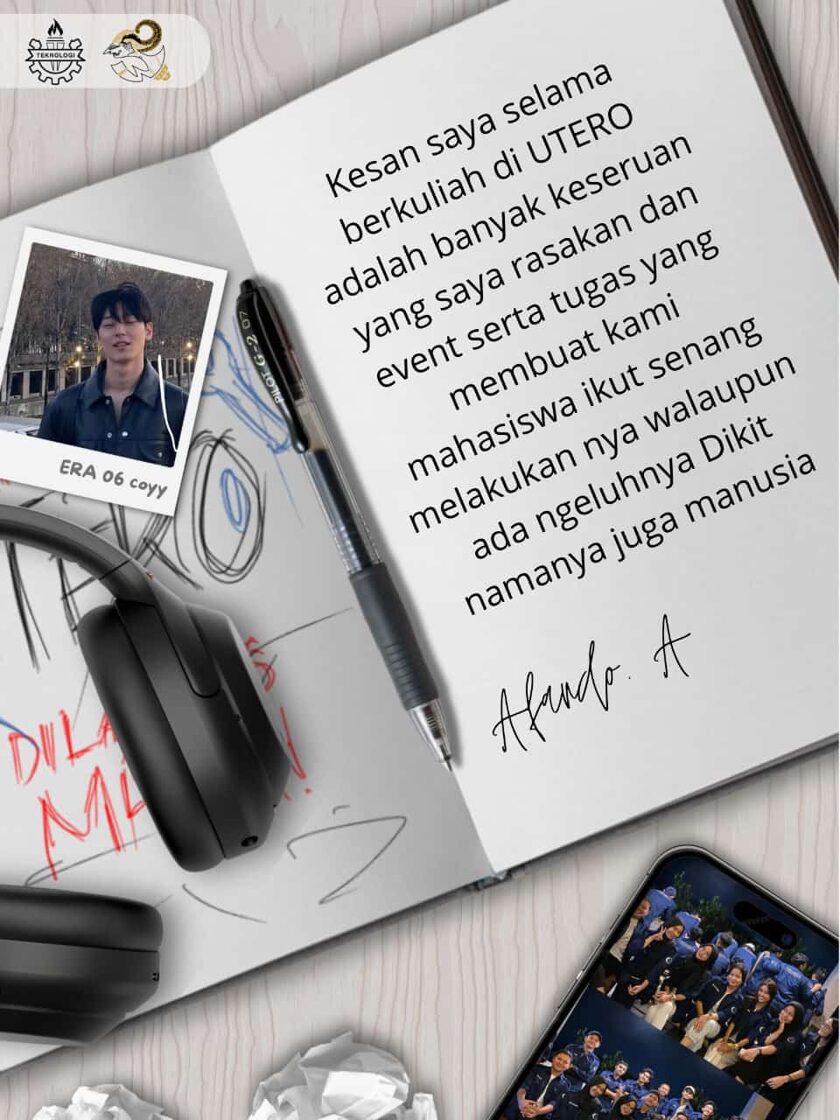 TEKNOLOGI
Kesan saya selama
berkuliah di UTERO
adalah banyak keseruan
yang saya rasakan dan
event serta tugas yang
membuat kami
mahasiswa ikut senang
melakukan nya walaupun
ada ngeluhnya Dikit
namanya juga manusia
Afando. A
ERA 06 coyy
PILOT G-2 07